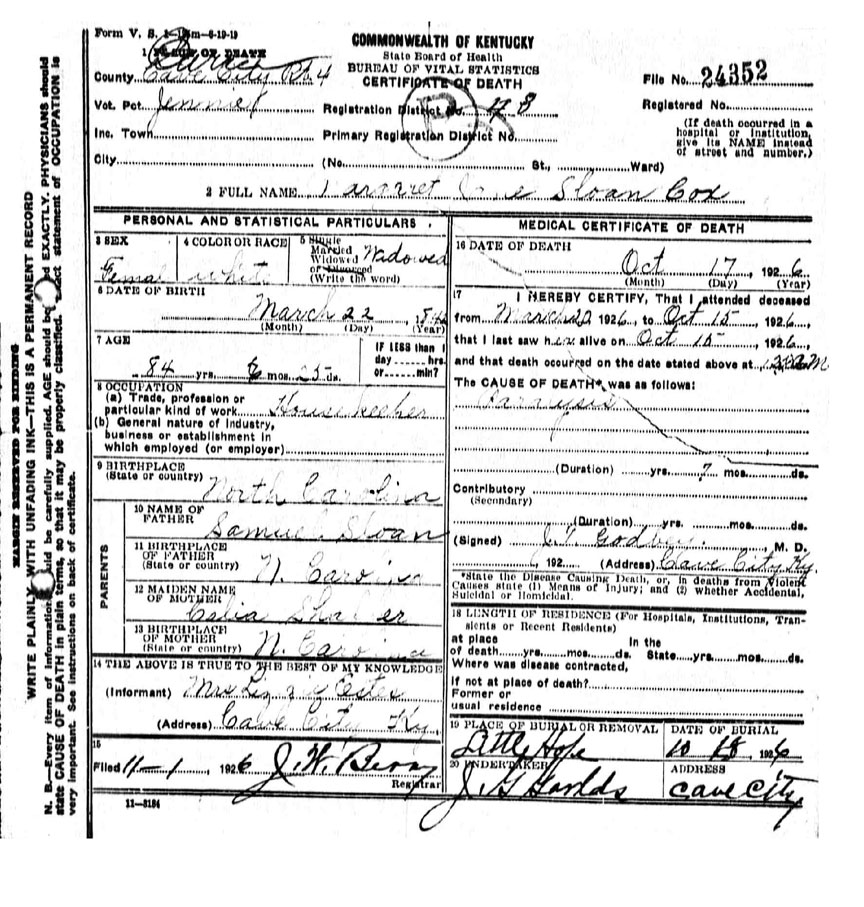 Form V. S. 1-m-6-19-19
1 PLACE OF DEATH
COMMONWEALTH OF KENTUCKY
State Board of Health
BUREAU OF VITAL STATISTICS
CERTIFICATE OF DEATH
File No. 24352
County Cave City Rt 4
Vot. Pct.
Registration District No.
Registered No.
Inc. Town
Primary Registration District No.
(If death occurred in a hospital or institution, give its NAME instead of street and number.)
City (No. St., Ward)
2 FULL NAME Jane Sloan Cox
PERSONAL AND STATISTICAL PARTICULARS
3 SEX
Female
4 COLOR OR RACE
white
5 Single
Married
Widowed
or Divorced
(Write the word)
Widowed
6 DATE OF BIRTH
March 22
(Month) (Day) (Year)
7 AGE
84 yrs. 6 mos. 25 ds.
IF LESS than 1
day hrs.
or min?
8 OCCUPATION
(a) Trade, profession or
particular kind of work House keeper
(b) General nature of industry,
business or establishment in
which employed (or employer)
9 BIRTHPLACE
(State or country) North Carolina
PARENTS
10 NAME OF
FATHER Samuel Sloan
11 BIRTHPLACE
OF FATHER
(State or country) N. Carolina
12 MAIDEN NAME
OF MOTHER Celia
13 BIRTHPLACE
OF MOTHER
(State or country) N. Carolina
14 THE ABOVE IS TRUE TO THE BEST OF MY KNOWLEDGE
(Informant) Mrs Estes
(Address) Cave City Ky.
15
Filed 11-1, 1926 J. W. Berry
Registrar
11-3184
MEDICAL CERTIFICATE OF DEATH
16 DATE OF DEATH
Oct 17, 1926
(Month) (Day) (Year)
17 I HEREBY CERTIFY, That I attended deceased
from March 20 1926, to Oct 15, 1926,
that I last saw her alive on Oct 15, 1926,
and that death occurred on the date stated above at M
The CAUSE OF DEATH* was as follows:
Paralysis
(Duration) yrs. 7 mos. ds.
Contributory
(Secondary)
(Duration) yrs. mos. ds.
(Signed) J. T. Godbey, M. D.
, 192 (Address) Cave City Ky.
*State the Disease Causing Death, or, in deaths from Violent
Causes state (1) Means of Injury; and (2) whether Accidental,
Suicidal or Homicidal.
18 LENGTH OF RESIDENCE (For Hospitals, Institutions, Tran-
sients or Recent Residents)
at place In the
of death yrs. mos. ds. State yrs. mos. ds.
Where was disease contracted,
If not at place of death?
Former or
usual residence
19 PLACE OF BURIAL OR REMOVAL
Little Hope
DATE OF BURIAL
10 18 1926
20 UNDERTAKER
J. G.
ADDRESS
Cave City
MARGIN RESERVED FOR BINDING
WRITE PLAINLY WITH UNFADING INK—THIS IS A PERMANENT RECORD
N. B.—Every item of information should be carefully supplied. AGE should be stated EXACTLY. PHYSICIANS should
state CAUSE OF DEATH in plain terms, so that it may be properly classified. Exact statement of OCCUPATION is
very important. See instructions on back of certificate.